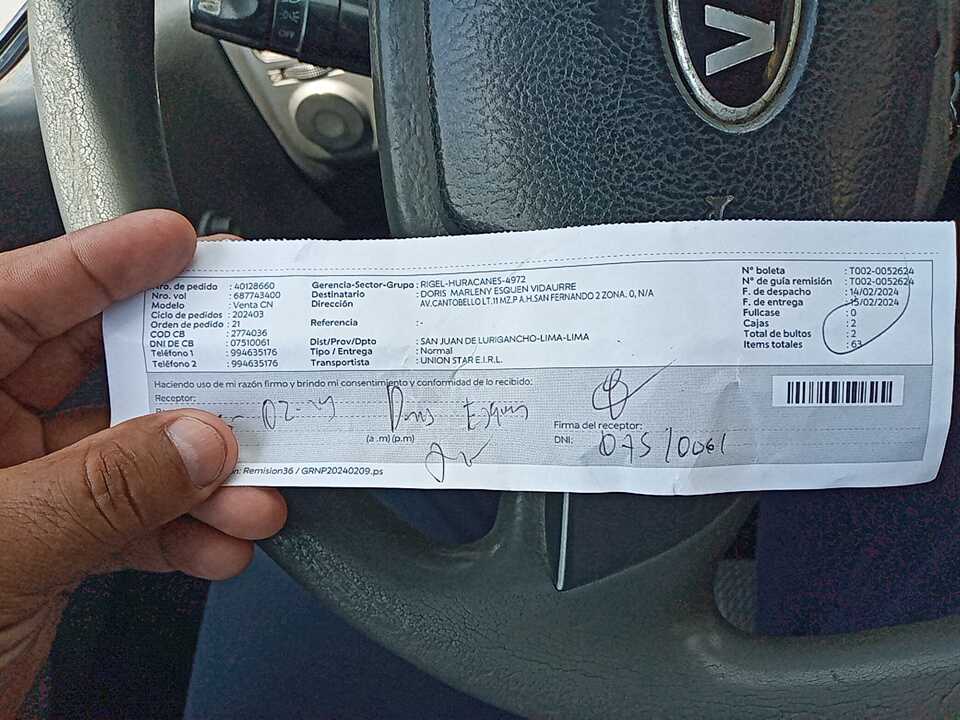 OFF
V
Nro. de pedido : 40128660
Nro. vol : 687743400
Modelo : Venta CN
Ciclo de pedidos : 202403
Orden de pedido : 21
COD CB : 2774036
DNI DE CB : 07510061
Teléfono 1 : 994635176
Teléfono 2 : 994635176
Gerencia-Sector-Grupo : RIGEL-HURACANES-4972
Destinatario : DORIS MARLENY ESQUEN VIDAURRE
Dirección : AV.CANTOBELLO LT.11 MZ.P A.H.SAN FERNANDO 2 ZONA. 0, N/A
Referencia :-
Dist/Prov/Dpto : SAN JUAN DE LURIGANCHO-LIMA-LIMA
Tipo / Entrega : Normal
Transportista : UNION STAR E.I.R.L.
N° boleta : T002-0052624
N° de guía remisión : T002-0052624
F. de despacho : 14/02/2024
F. de entrega : 15/02/2024
Fullcase : 0
Cajas : 2
Total de bultos : 2
Items totales : 63
Haciendo uso de mi razón firmo y brindo mi consentimiento y conformidad de lo recibido:
Receptor:
02-24 Doris Esquen
(a .m) (p.m)
Firma del receptor:
DNI: 07510061
n: Remision36 / GRNP20240209.ps